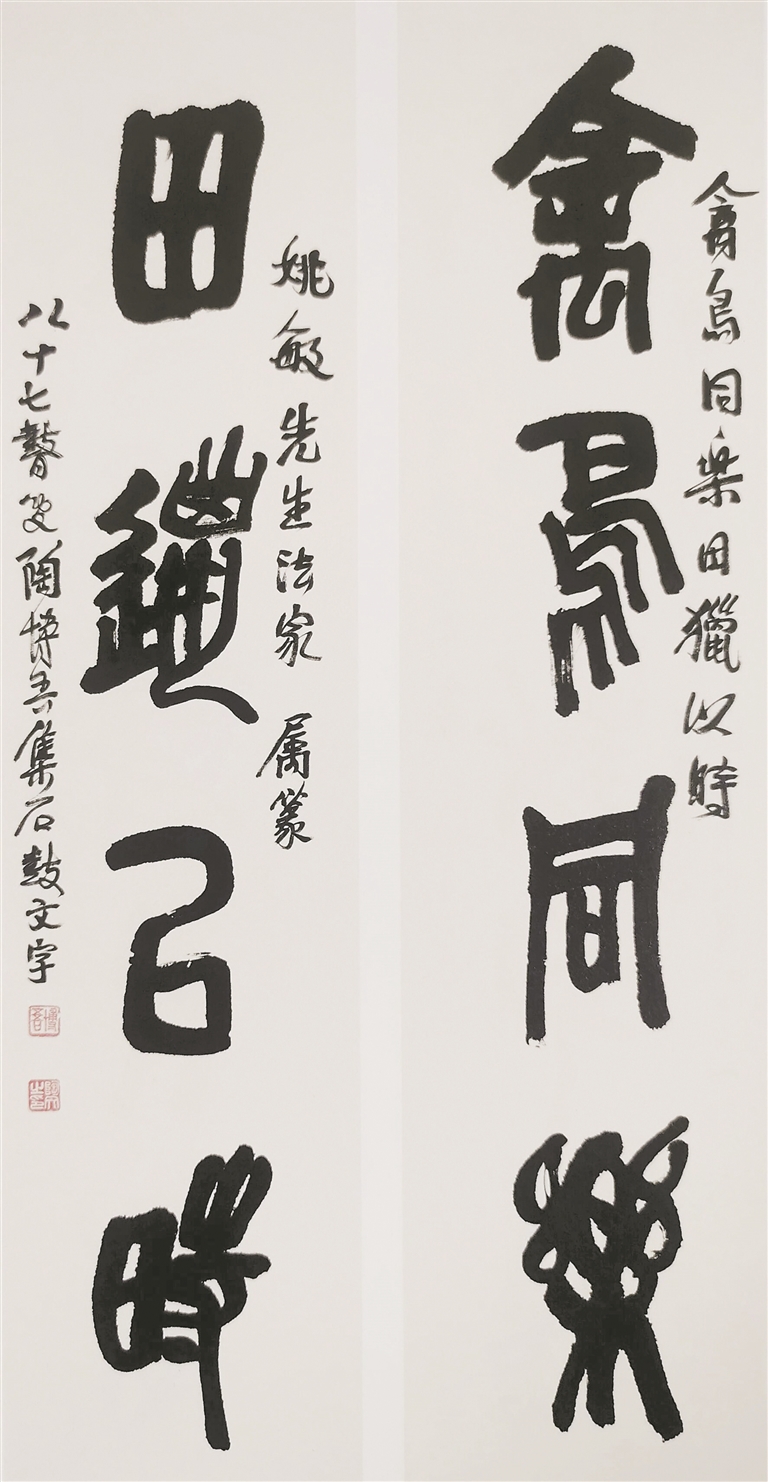 禽鳥同樂田獵以時
禽鳥同樂
姚敏先生法家 属篆
田獵以時
八十七聱叟陶博吾集石鼓文字
博吾